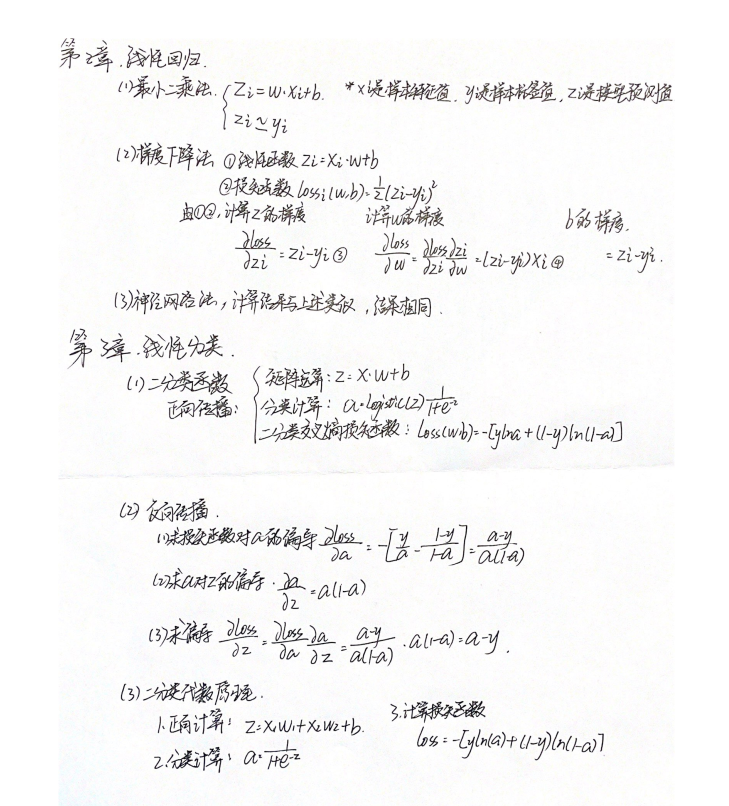 第2章.线性回归.
(1)最小二乘法. { Zi=w·xi+b. *x是样本特征值.y是样本标签值,z是模型预测值
zi≃yi
(2)梯度下降法 ①线性函数 Zi=xi·w+b
②损失函数 lossi(w,b)=1/2(zi-yi)²
由①②,计算Z的梯度 计算w的梯度 b的梯度.
∂loss/∂zi=zi-yi③ ∂loss/∂w=∂loss/∂zi ∂zi/∂w=(zi-yi)xi④ =zi-yi.
(3)神经网络法,计算结果与上述类似,结果相同.
第3章.线性分类.
(1)二分类函数 { 矩阵运算:z=x·w+b
正向传播: 分类计算: a=logistic(z)1/1+e^-z
二分类交叉熵损失函数: loss(w·b)=-[ylna+(1-y)ln(1-a)]
(2)反向传播.
(1)求损失函数对a的偏导 ∂loss/∂a=-[y/a-1-y/1-a]=a-y/a(1-a)
(2)求a对z的偏导.∂a/∂z=a(1-a)
(3)求偏导 ∂loss/∂z=∂loss/∂a ∂a/∂z=a-y/a(1-a)·a(1-a)=a-y.
(3)二分类代数原理.
1.正向计算: z=x1w1+x2w2+b. 3.计算损失函数
2.分类计算: a=1/1+e^-z loss=-[yln(a)+(1-y)ln(1-a)]